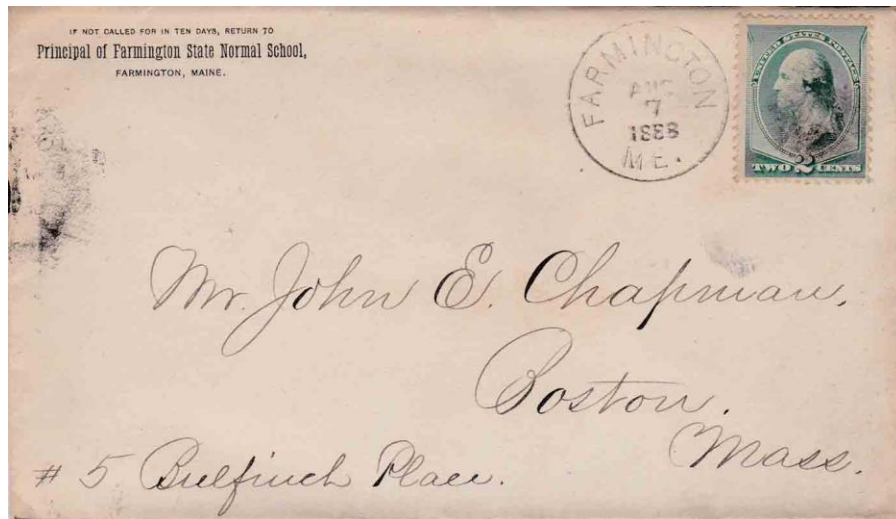 IF NOT CALLED FOR IN TEN DAYS, RETURN TO
Principal of Farmington State Normal School,
FARMINGTON, MAINE.
FARMINGTON
AUG
7
1888
ME.
UNITED STATES POSTAGE
TWO 2 CENTS
Mr. John E. Chapman,
Boston.
Mass.
# 5 Bulfinch Place.